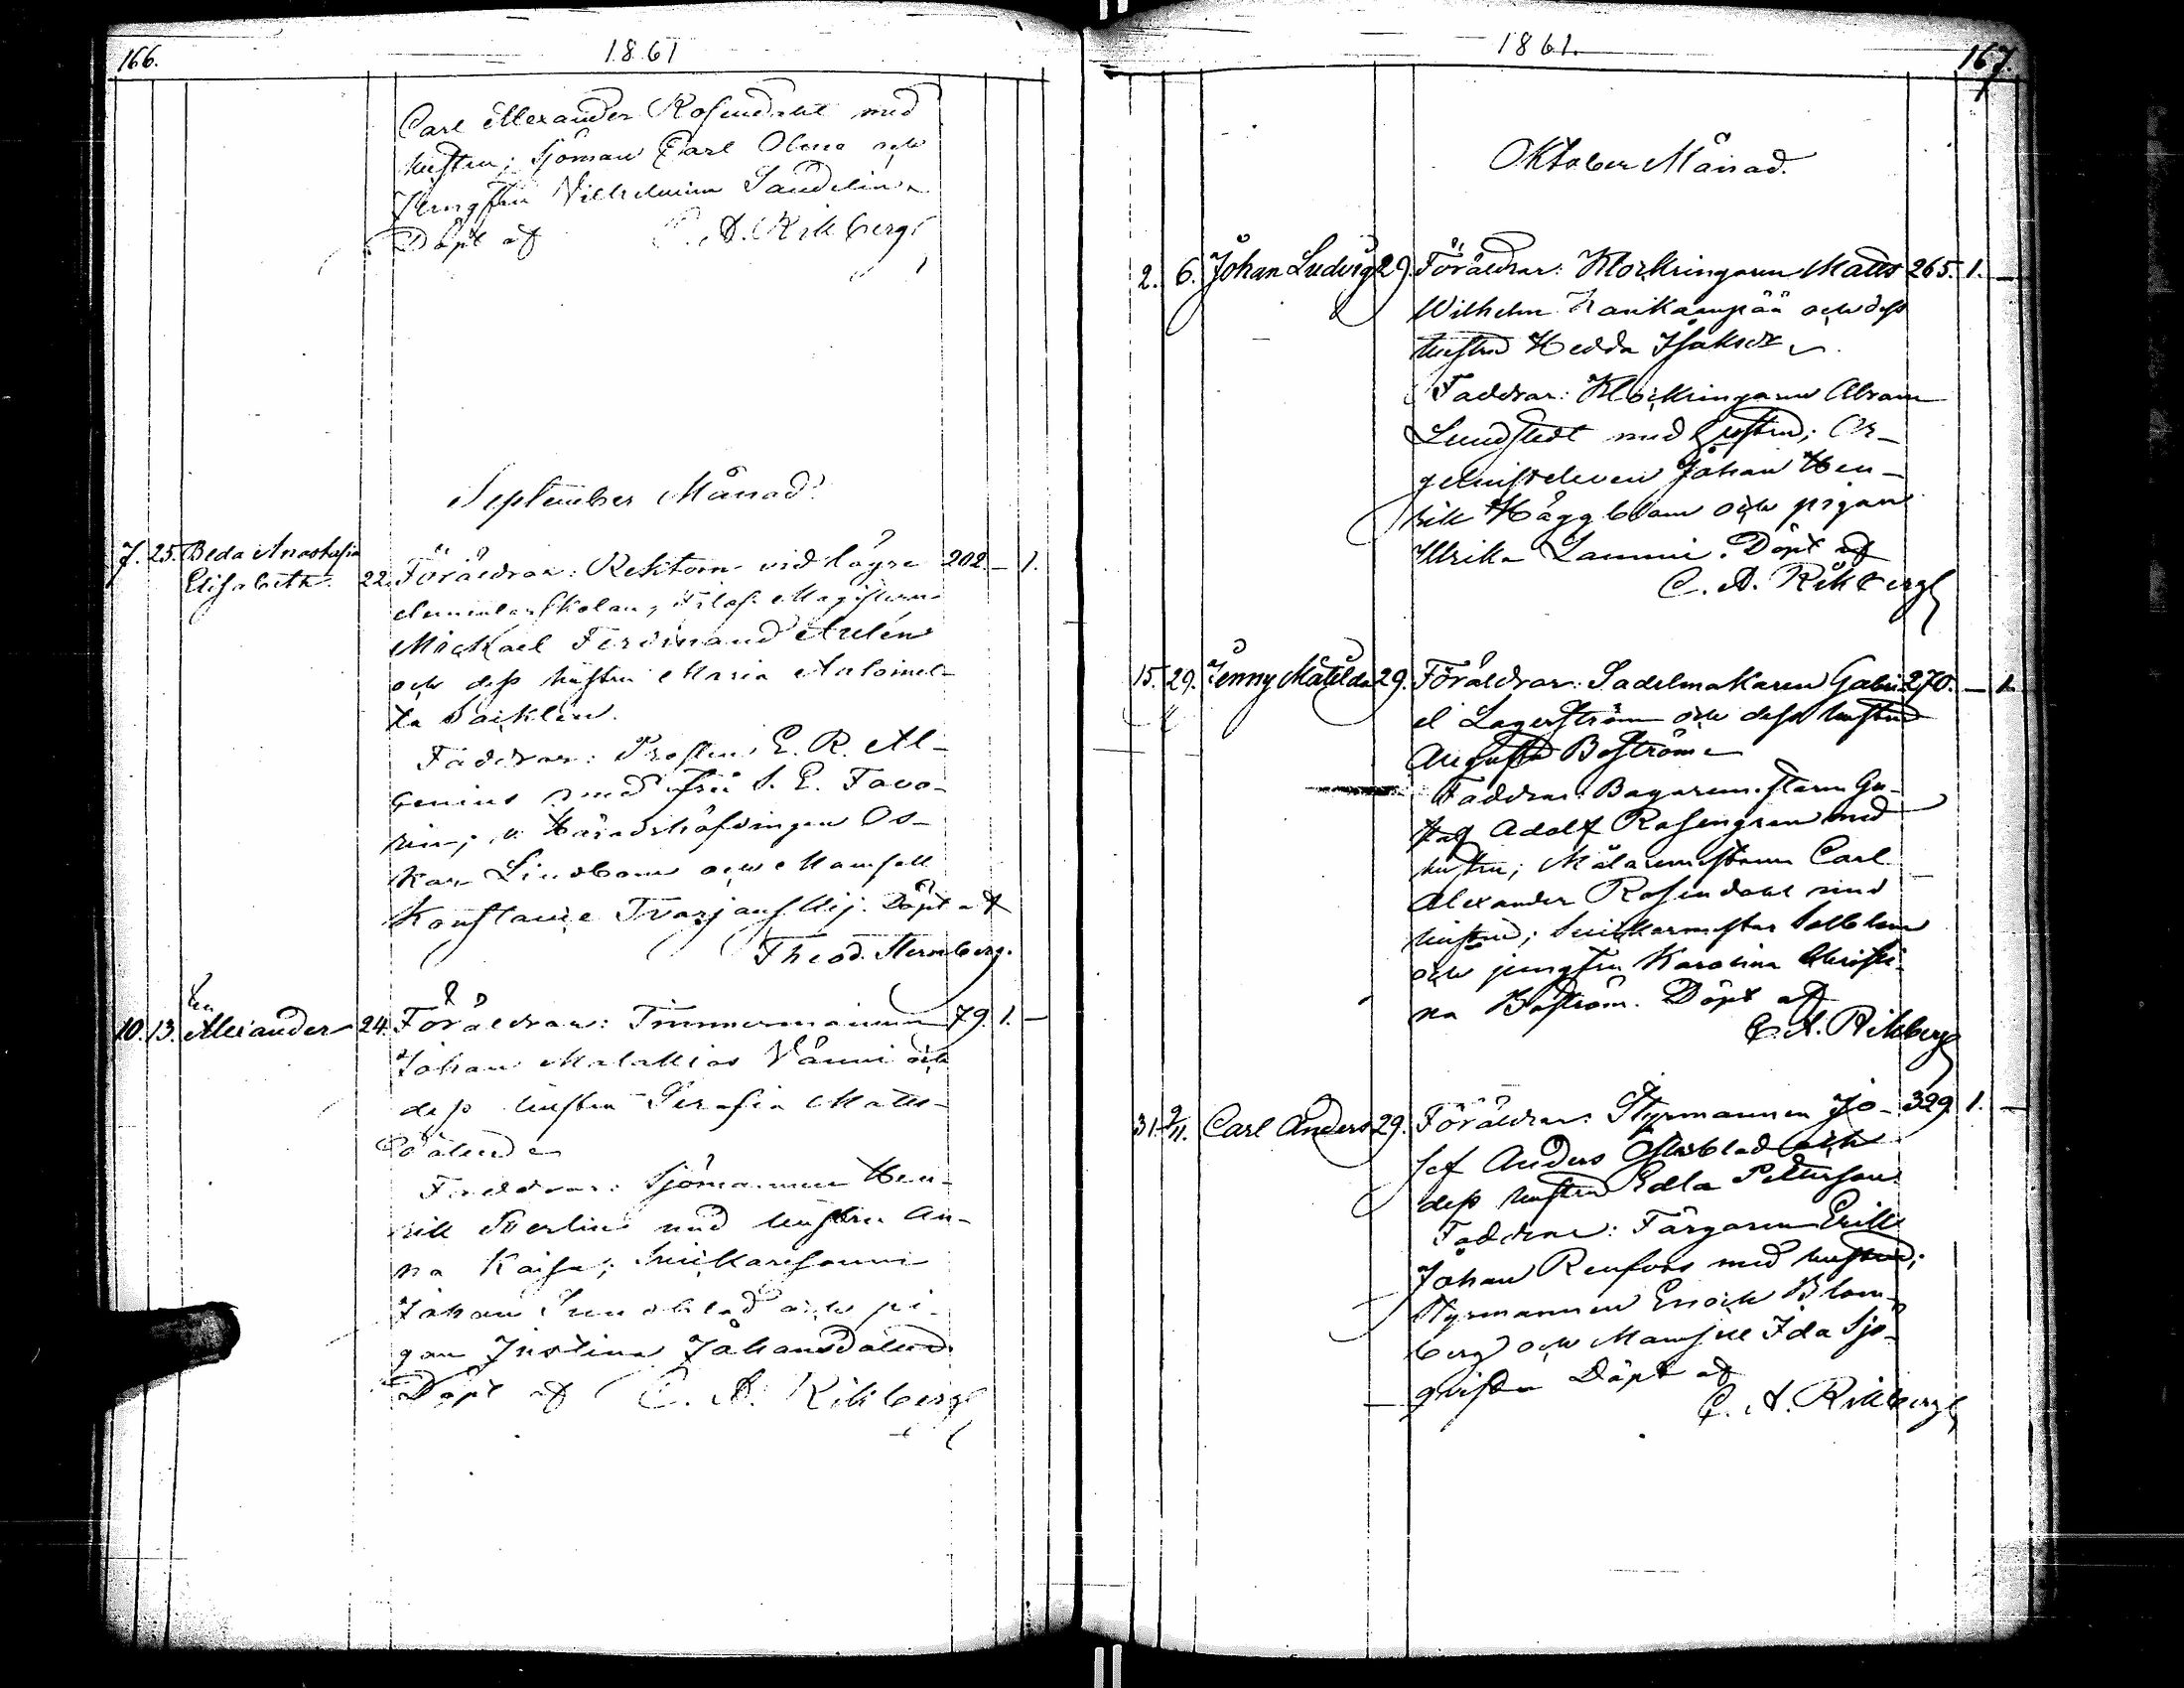 166.
1861
Carl Alexander Rosendahl med
hustru; Sjöman Carl Olmo och
Jungfru Vilhelmina Sandelin
Döpt af C. A. Rikberg
September Månad.
7. 25. Beda Anastasia
Elisabeth 22. Föräldrar: Rektorn vid lägre 202. — 1.
elementarskolan, Filos. Magistern
Mickael Ferdinand Aulén
och dess hustru Maria Antoinet-
ta Saiklin.
Faddrar: Prosten E. R. Al-
cenius med fru S. E. Favo-
rin; v. Häradshöfdingen Os-
kar Lindbom och Mamsell
Konstance Tvarjanskij. Döpt af
Theod. Sternberg.
10. 13. Alexander 24. Föräldrar: Timmermannen 79. 1. —
Johan Malakias Vänni och
dess hustru Serafia Matts-
Faddrar: Sjömannen Hen-
rik Merlin med hustru An-
na Kaisa; Snickaresonen
Johan Sundblad och pi-
gan Justina Johansdotter
Döpt af C. A. Rikberg
1861.
167.
Oktober Månad.
2. 6. Johan Ludvig 29. Föräldrar: Klockringaren Matts 265. 1. —
Wilhelm Hanikampää och dess
hustru Hedda Isaksdr
Faddrar: Klockringaren Abram
Lundstedt med hustru; Or-
gelnisteleven Johan Hen-
rik Häggblom och pigan
Ulrika Lammi. Döpt af
C. A. Rikberg
15. 29. Jenny Matilda 29. Föräldrar: Sadelmakaren Gabri- 270. — 1.
el Lagerström och dess hustru
Augusta Boström
Faddrar: Bagaremästaren Gu-
staf Adolf Rosengren med
hustru; Målaremästaren Carl
Alexander Rosendahl med
hustru; Snickarmästar
och jungfru Karolina Christi-
na Boström. Döpt af
C. A. Rikberg
31. 9/11. Carl Anders 29. Föräldrar: Styrmannen Jo- 329. 1. —
sef Anders Österblad och
dess hustru Edla Petterson
Faddrar: Färgaren Erik
Johan Renfors med hustru;
Styrmannen Enock Blom-
berg och Mamsell Ida Sjö-
qvist Döpt af
C. A. Rikberg